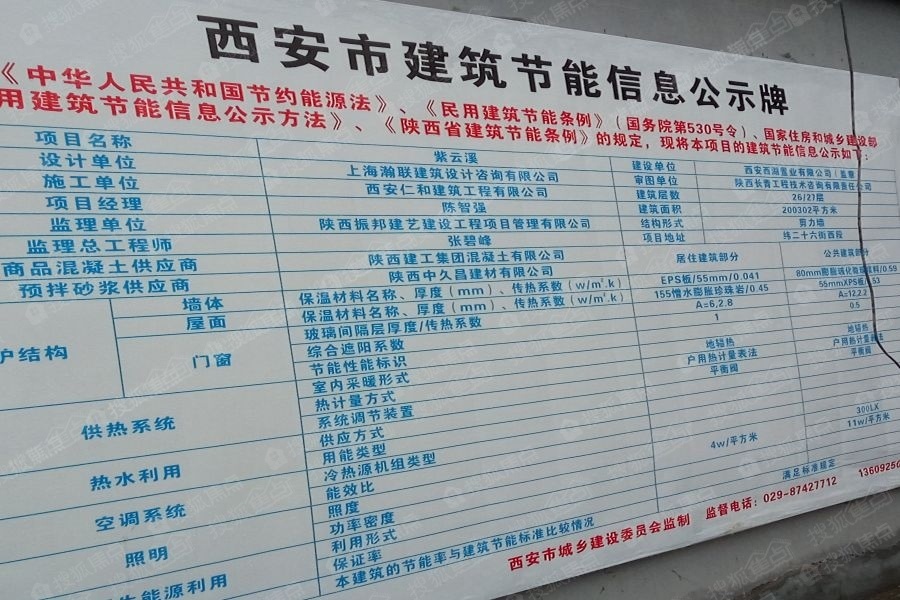 西安市建筑节能信息公示牌
《中华人民共和国节约能源法》、《民用建筑节能条例》（国务院第530号令）、国家住房和城乡建设部
用建筑节能信息公示方法》、《陕西省建筑节能条例》的规定，现将本项目的建筑节能信息公示如下：
项目名称 紫云溪 建设单位 西安西湖置业有限公司
设计单位 上海瀚联建筑设计咨询有限公司 审图单位 陕西长青工程技术咨询有限责任公司
施工单位 西安仁和建筑工程有限公司 建筑层数 26/27层
项目经理 陈智强 建筑面积 200302平方米
监理单位 陕西振邦建艺建设工程项目管理有限公司 结构形式 剪力墙
监理总工程师 张碧峰 项目地址 纬二十六街西段
商品混凝土供应商 陕西建工集团混凝土有限公司 居住建筑部分 公共建筑部分
预拌砂浆供应商 陕西中久昌建材有限公司
护结构 墙体 保温材料名称、厚度（mm）、传热系数（w/㎡.k） EPS板/55mm/0.041
屋面 保温材料名称、厚度（mm）、传热系数（w/㎡.k） 155憎水膨胀珍珠岩/0.45 55mmXPS板
门窗 玻璃间隔层厚度/传热系数 A=6,2.8 A=12,2.2
综合遮阳系数 1 0.5
节能性能标识
供热系统 室内采暖形式 地辐热 地辐热
热计量方式 户用热计量表法 户用热计量表法
系统调节装置 平衡阀 平衡阀
热水利用 供应方式
用能类型
空调系统 冷热源机组类型
能效比
照明 照度 300LX
功率密度 4w/平方米 11w/平方米
生能源利用 利用形式
保证率
本建筑的节能率与建筑节能标准比较情况 满足标准规定
西安市城乡建设委员会监制 监督电话：029-87427712 1360925